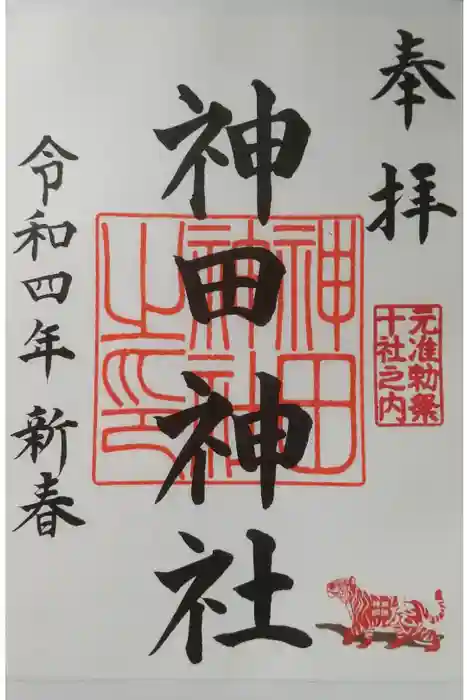 奉拝
元准勅祭
十社之内
神田神社
神田
神社
之印
令和四年新春